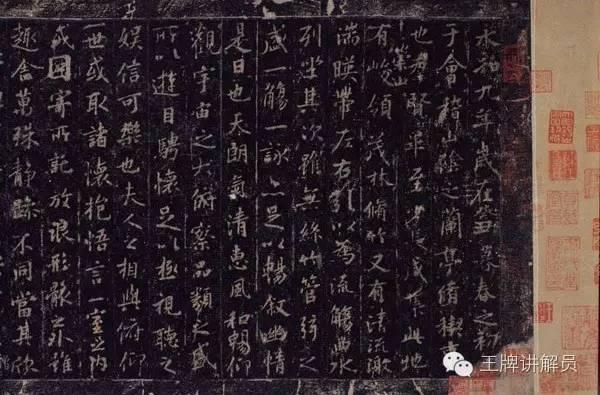 永和九年歲在癸丑暮春之初
于會稽山陰之蘭亭脩稧事
也羣賢畢至少長咸集此地
有崇山峻領茂林脩竹又有清流激
湍暎帶左右引以為流觴曲水
列坐其次雖無絲竹管弦之
盛一觴一詠亦足以暢敘幽情
是日也天朗氣清惠風和暢仰
觀宇宙之大俯察品類之盛
所以遊目騁懷足以極視聽之
娛信可樂也夫人之相與俯仰
一世或取諸懷抱悟言一室之内
或因寄所託放浪形骸之外雖
趣舍萬殊静躁不同當其欣
王牌讲解员